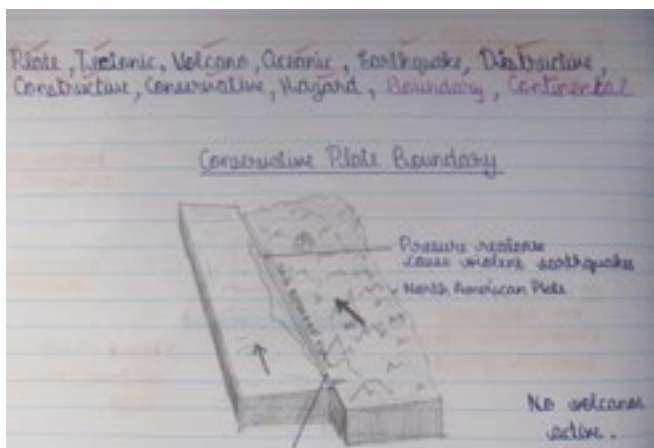 Plate, Tectonic, Volcano, Oceanic, Earthquake, Distructive,
Constructive, Conservative, Hazard, Boundary, Continental
Conservative Plate Boundary
Presure
cause violent earthquakes
North American Plate
No volcanos
active.